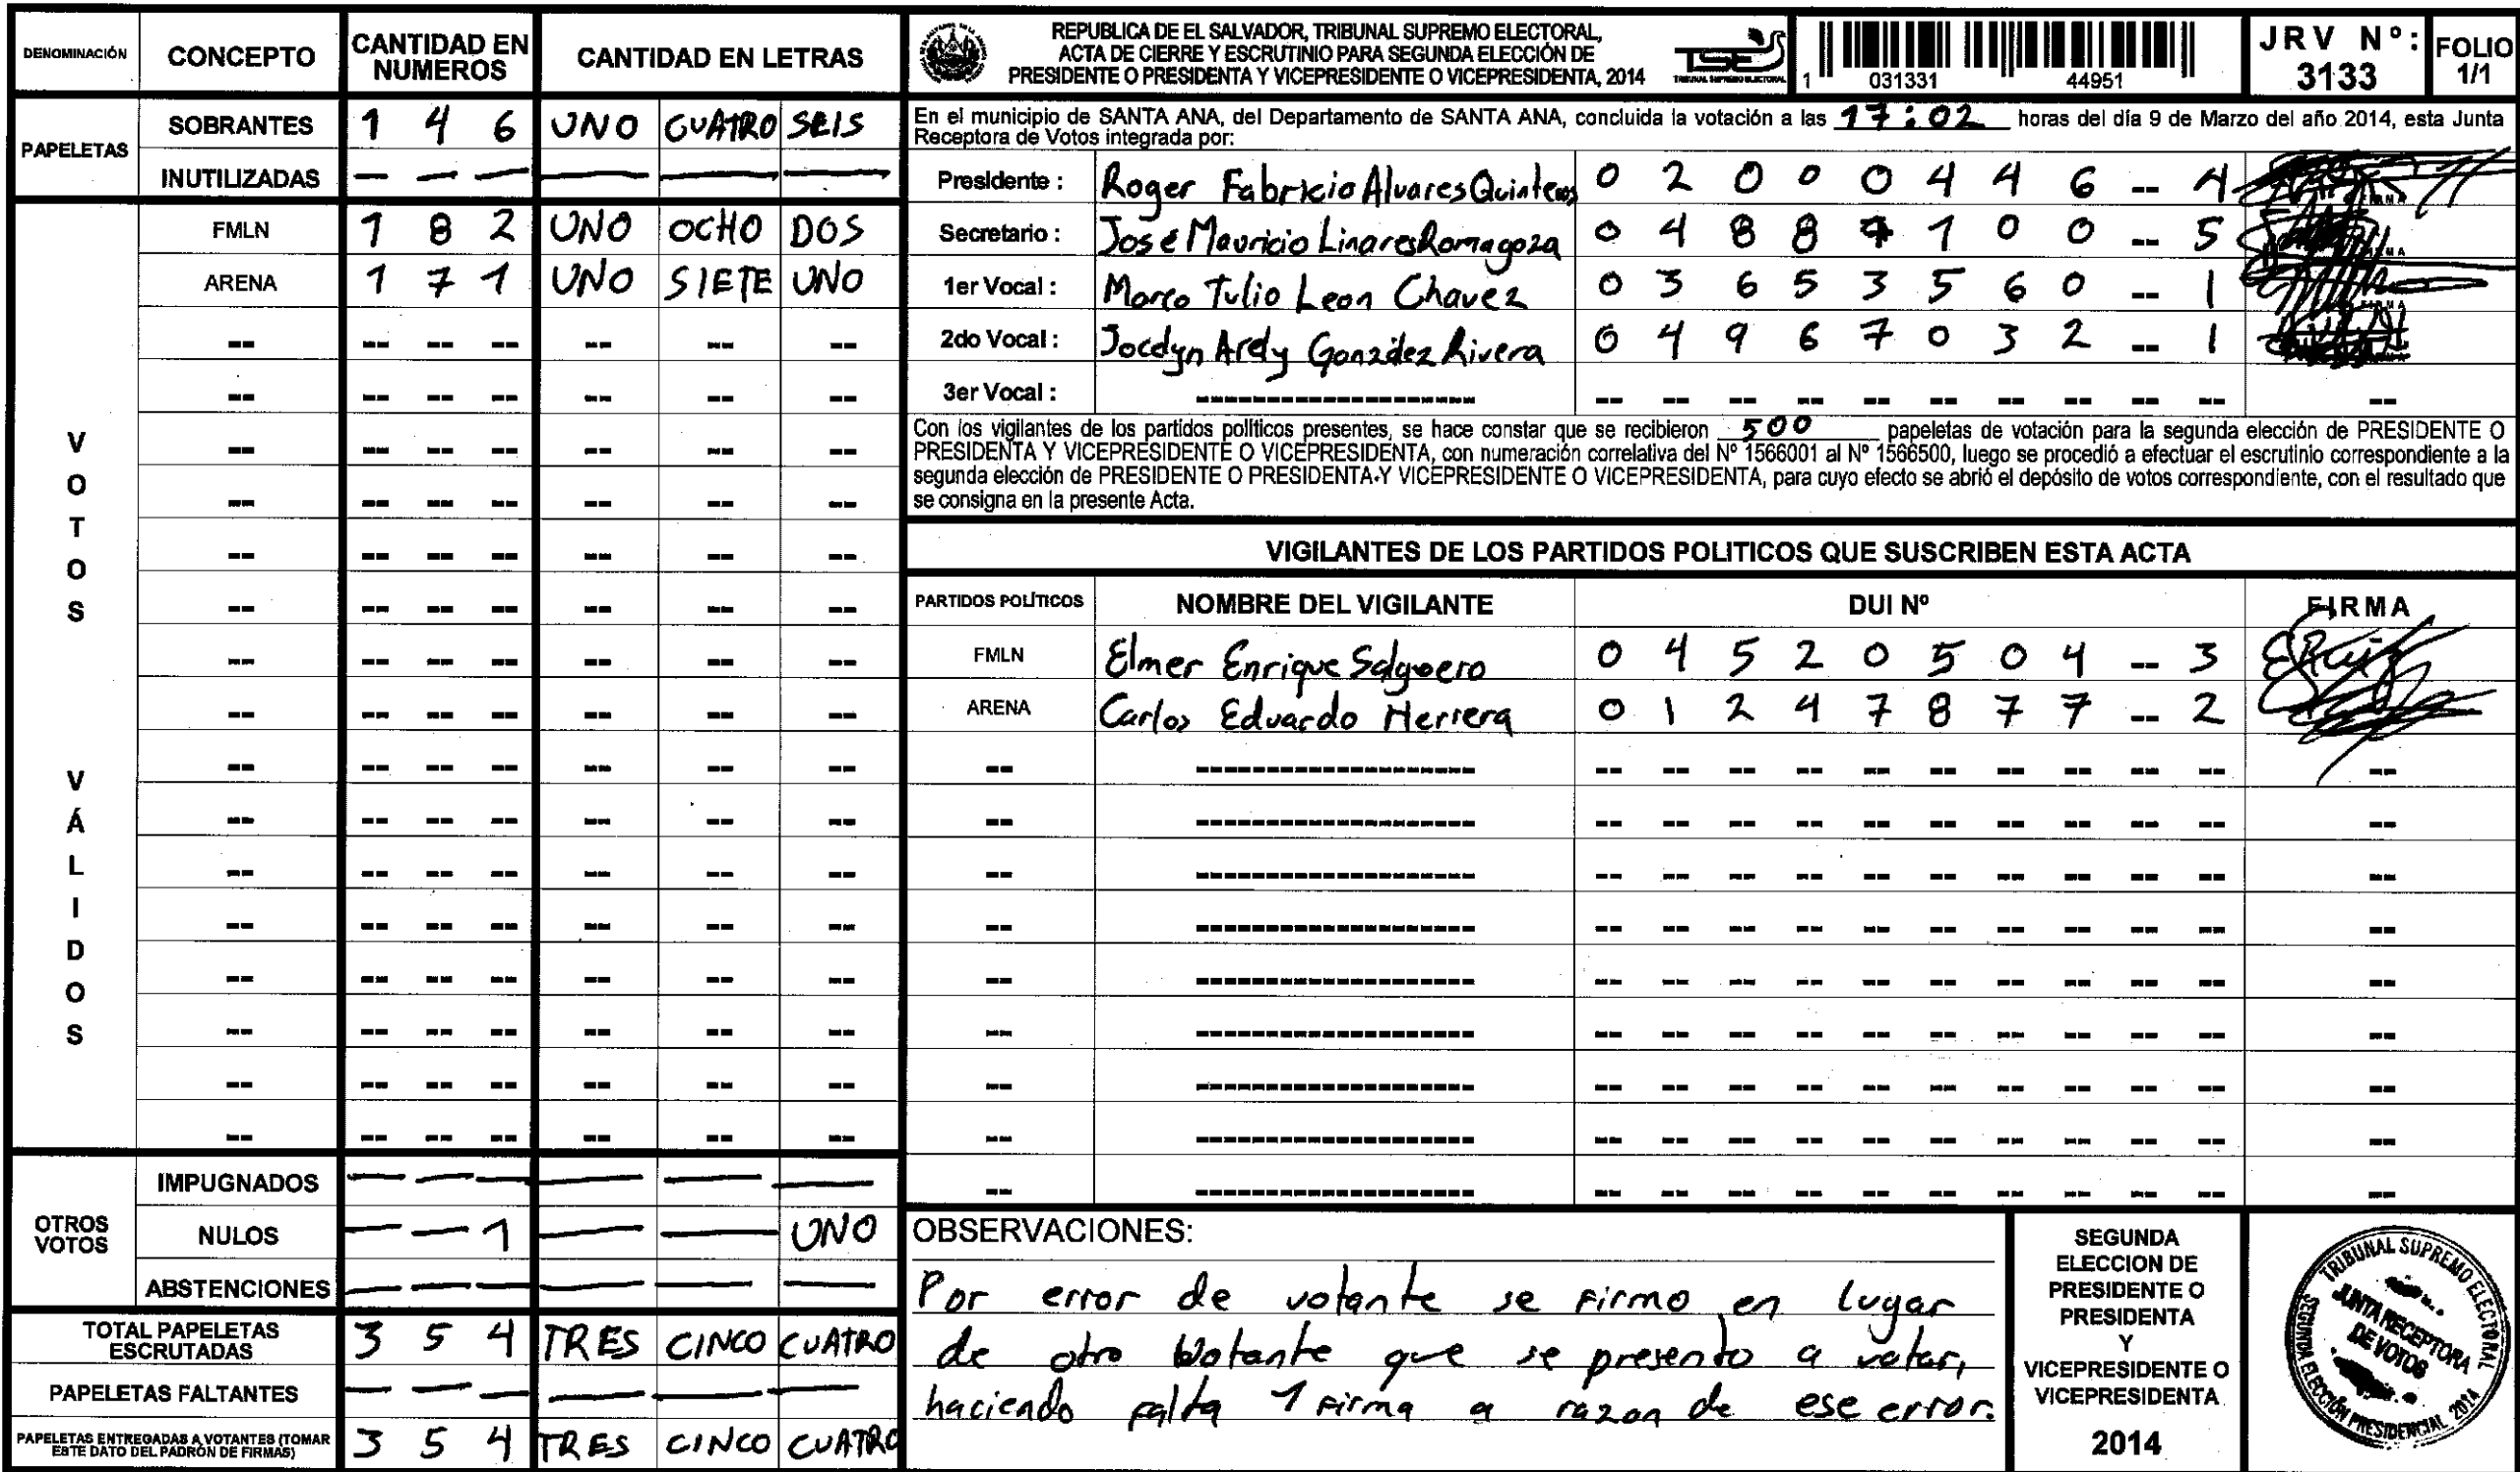 DENOMINACIÓN CONCEPTO CANTIDAD EN NUMEROS CANTIDAD EN LETRAS
PAPELETAS
SOBRANTES 1 4 6 UNO CUATRO SEIS
INUTILIZADAS — — — — — —
VOTOS VÁLIDOS
FMLN 1 8 2 UNO OCHO DOS
ARENA 1 7 1 UNO SIETE UNO
OTROS VOTOS
IMPUGNADOS — — — — — —
NULOS — — 1 — — UNO
ABSTENCIONES — — — — — —
TOTAL PAPELETAS ESCRUTADAS 3 5 4 TRES CINCO CUATRO
PAPELETAS FALTANTES — — — — — —
PAPELETAS ENTREGADAS A VOTANTES (TOMAR ESTE DATO DEL PADRÓN DE FIRMAS) 3 5 4 TRES CINCO CUATRO
REPUBLICA DE EL SALVADOR, TRIBUNAL SUPREMO ELECTORAL,
ACTA DE CIERRE Y ESCRUTINIO PARA SEGUNDA ELECCIÓN DE
PRESIDENTE O PRESIDENTA Y VICEPRESIDENTE O VICEPRESIDENTA, 2014
TSE
TRIBUNAL SUPREMO ELECTORAL
1 031331 44951
JRV Nº: 3133
FOLIO 1/1
En el municipio de SANTA ANA, del Departamento de SANTA ANA, concluida la votación a las 17:02 horas del día 9 de Marzo del año 2014, esta Junta
Receptora de Votos integrada por:
Presidente : Roger Fabricio Alvares Quinteros 0 2 0 0 0 4 4 6 -- 4
Secretario : José Mauricio Linares Romagoza 0 4 8 8 7 1 0 0 -- 5
1er Vocal : Marco Tulio Leon Chavez 0 3 6 5 3 5 6 0 -- 1
2do Vocal : Jocelyn Arely González Rivera 0 4 9 6 7 0 3 2 -- 1
3er Vocal :
Con los vigilantes de los partidos políticos presentes, se hace constar que se recibieron 500 papeletas de votación para la segunda elección de PRESIDENTE O
PRESIDENTA Y VICEPRESIDENTE O VICEPRESIDENTA, con numeración correlativa del Nº 1566001 al Nº 1566500, luego se procedió a efectuar el escrutinio correspondiente a la
segunda elección de PRESIDENTE O PRESIDENTA Y VICEPRESIDENTE O VICEPRESIDENTA, para cuyo efecto se abrió el depósito de votos correspondiente, con el resultado que
se consigna en la presente Acta.
VIGILANTES DE LOS PARTIDOS POLITICOS QUE SUSCRIBEN ESTA ACTA
PARTIDOS POLÍTICOS NOMBRE DEL VIGILANTE DUI Nº FIRMA
FMLN Elmer Enrique Salguero 0 4 5 2 0 5 0 4 -- 3
ARENA Carlos Eduardo Herrera 0 1 2 4 7 8 7 7 -- 2
OBSERVACIONES:
Por error de votante se firmo en lugar
de otro votante que se presento a votar,
haciendo falta 1 firma a razon de ese error.
SEGUNDA
ELECCION DE
PRESIDENTE O
PRESIDENTA
Y
VICEPRESIDENTE O
VICEPRESIDENTA
2014
TRIBUNAL SUPREMO ELECTORAL
JUNTA RECEPTORA
DE VOTOS
SEGUNDA ELECCIÓN PRESIDENCIAL 2014